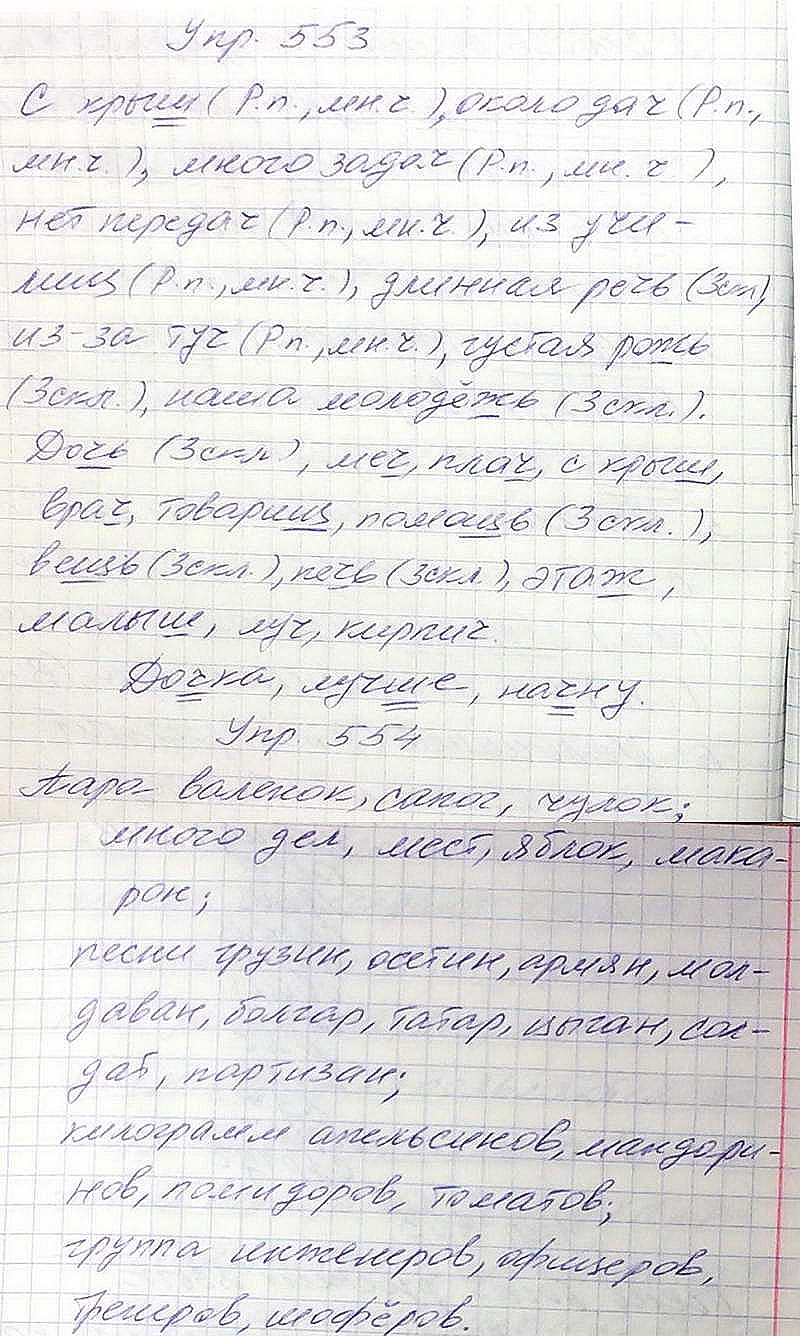 Упр. 553
С крыш (Р.п., мн.ч.), около дач (Р.п.,
мн.ч.), много задач (Р.п., мн.ч.),
нет передач (Р.п., мн.ч.), из учи-
лищ (Р.п., мн.ч.), длинная речь (3скл),
из-за туч (Р.п., мн.ч.), густая рожь
(3скл.), наша молодёжь (3скл.).
Дочь (3скл), меч, плач, с крыш,
врач, товарищ, помощь (3скл.),
вещь (3скл.), печь (3скл.), этаж,
малыш, луч, кирпич.
Дочка, лучше, начну.
Упр. 554
Пара валенок, сапог, чулок;
много дел, мест, яблок, мака-
рон;
песни грузин, осетин, армян, мол-
даван, болгар, татар, цыган, сол-
дат, партизан;
килограмм апельсинов, мандари-
нов, помидоров, томатов;
группа инженеров, офицеров,
тренеров, шофёров.